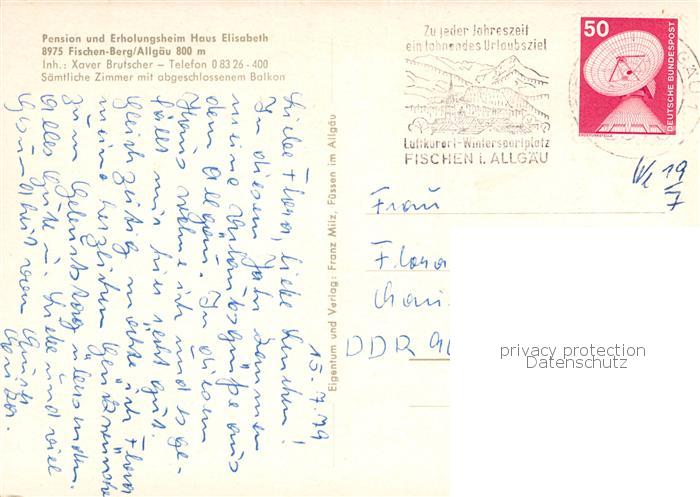 Pension und Erholungsheim Haus Elisabeth
8975 Fischen-Berg/Allgäu 800 m
Inh.: Xaver Brutscher – Telefon 0 83 26 - 400
Sämtliche Zimmer mit abgeschlossenem Balkon
Zu jeder Jahreszeit
ein lohnendes Urlaubsziel
Luftkurort-Wintersportplatz
FISCHEN i. ALLGÄU
50
DEUTSCHE BUNDESPOST
ERDEFUNKSTELLE
15.7.79
Liebe Flora, liebe
In diesem Jahr kommen
meine Urlaubsgrüße aus
dem Allgäu. In diesem
Haus wohne ich und es ge-
fällt mir hier recht gut.
Gleichzeitig möchte ich Flora
meine herzlichen Glückwünsche
zum Geburtstag übersenden.
Alles Gute u. Liebe und viel
Gesundheit von
Eigentum und Verlag: Franz Milz, Füssen im Allgäu
19
7
Frau
Flora
DDR
privacy protection
Datenschutz